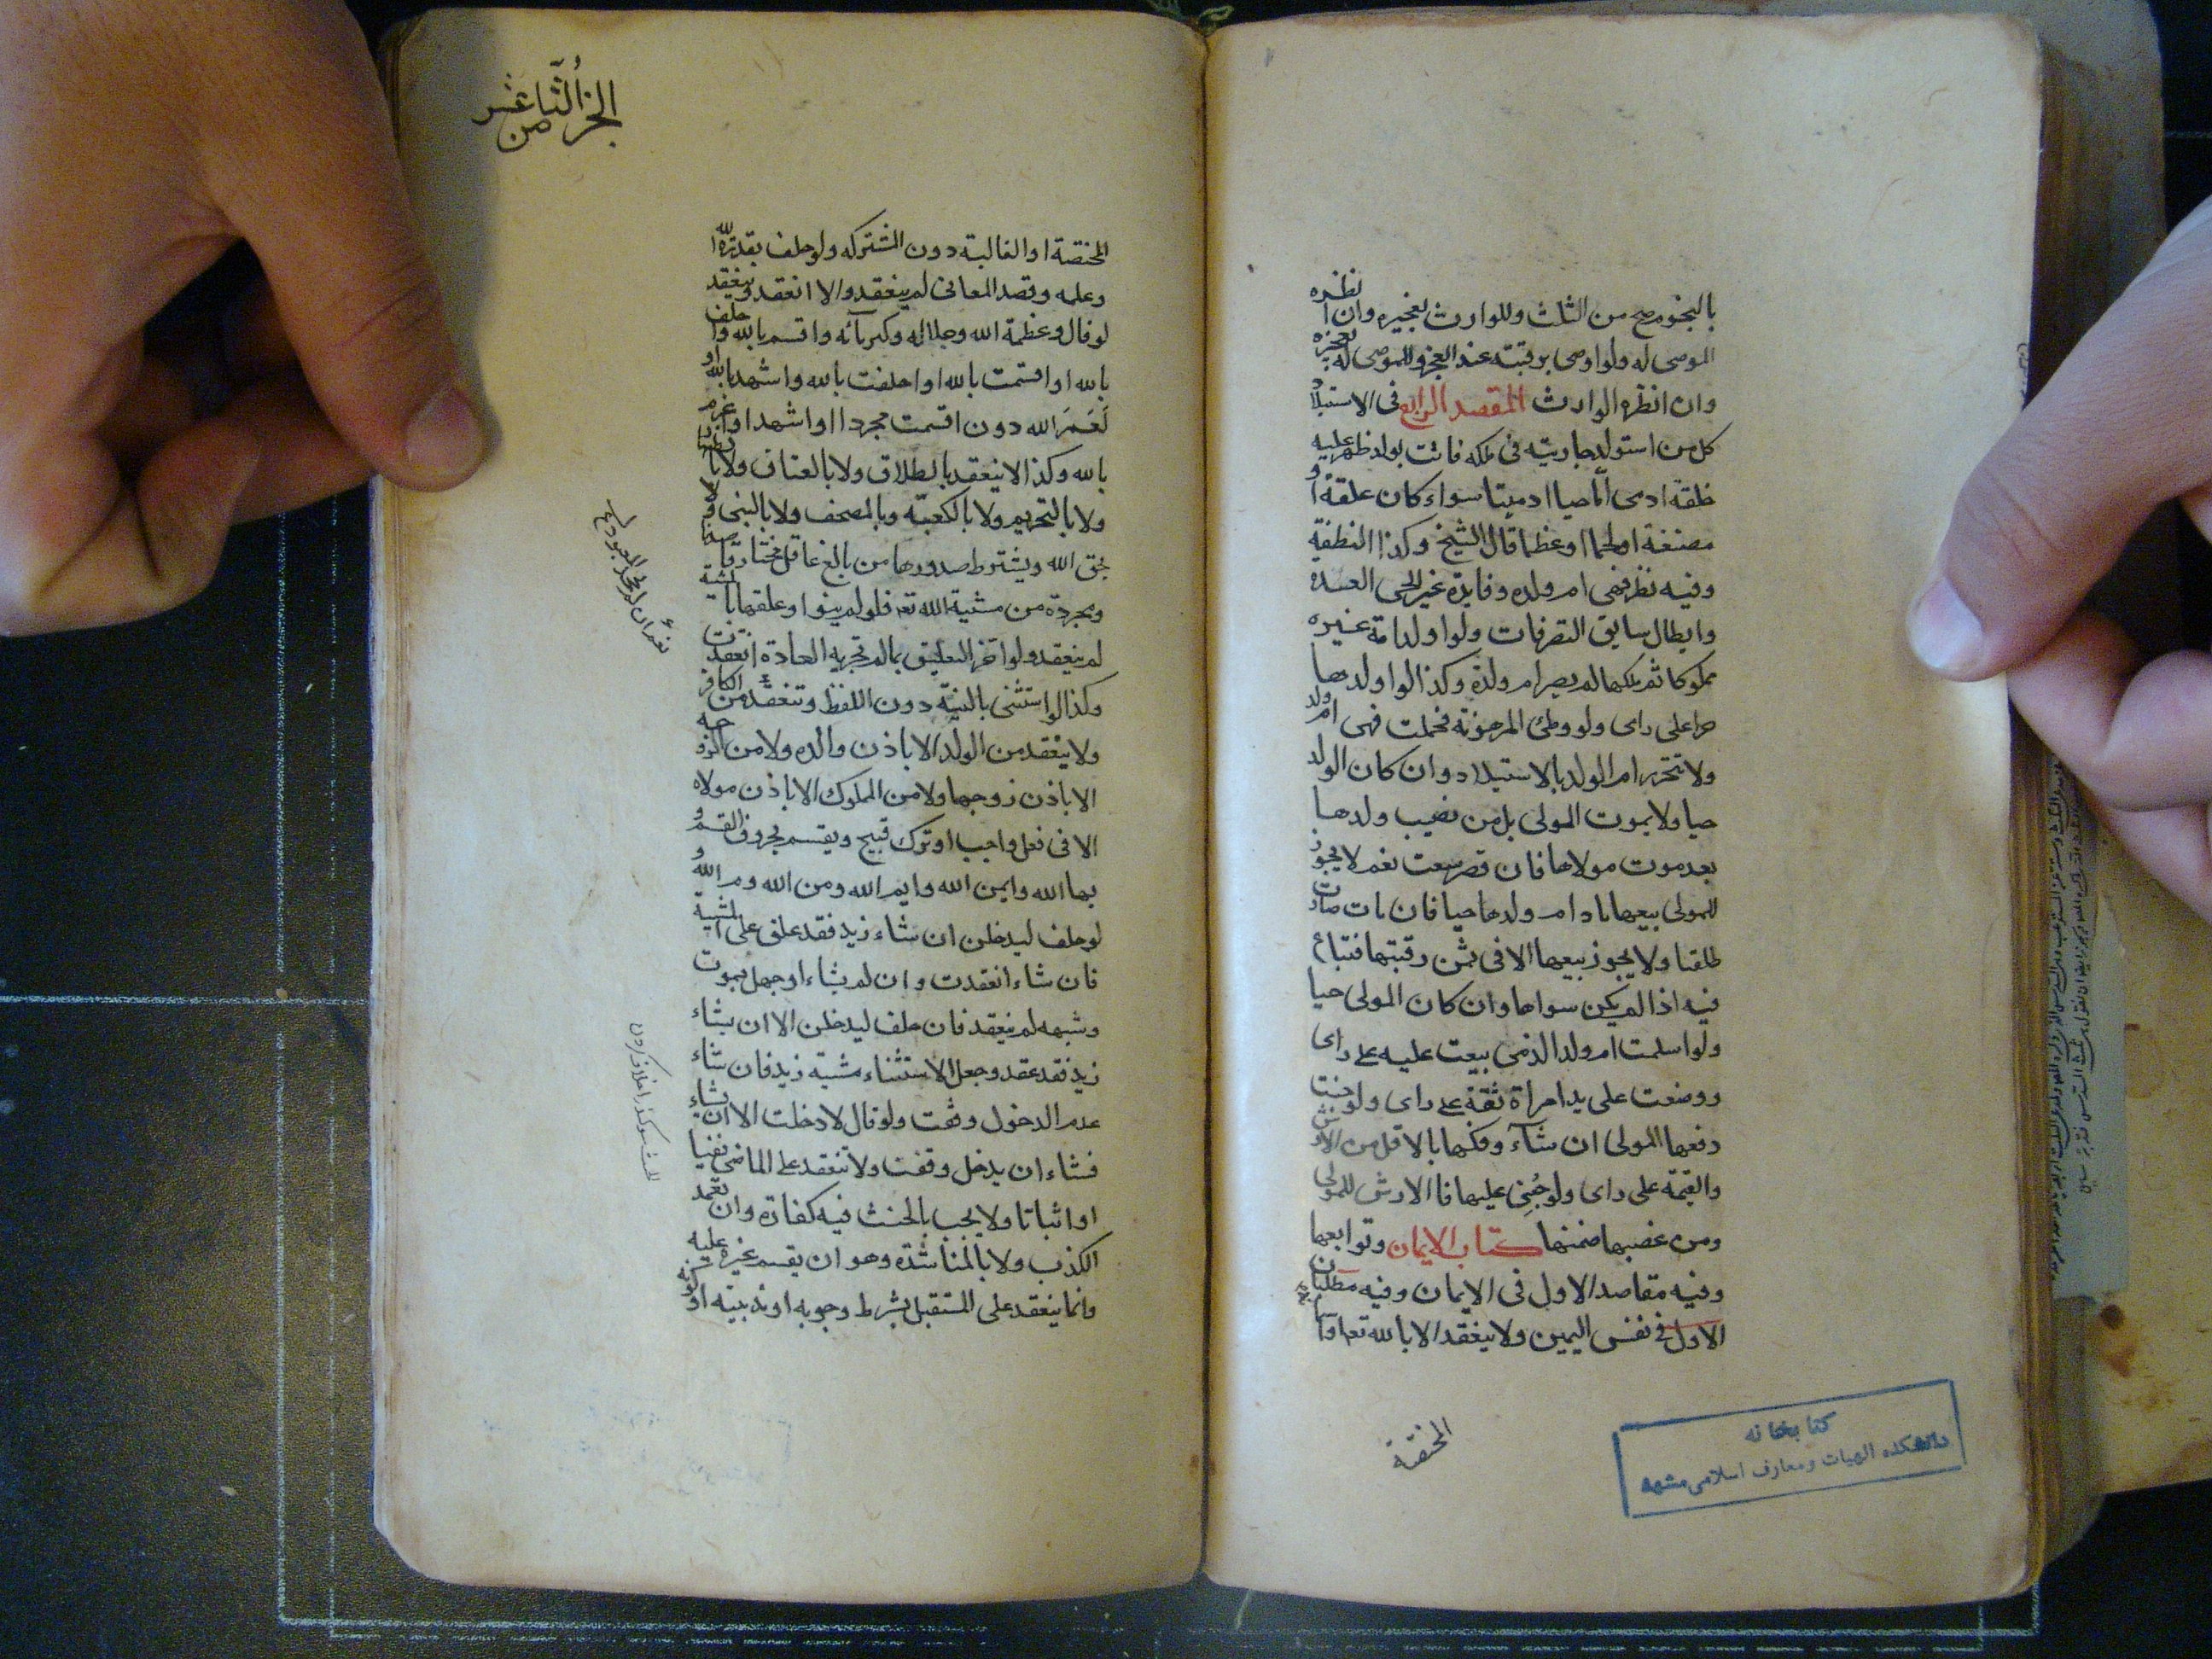 بالنجوم صح من الثلث وللوارث تعجيزه وان انظره
الموصى له ولو اوصى برقبته عند العجز فللموصى له تعجيزه
وان انظره الوارث المقصد الرابع فى الاستيلاد
كل من استولد جاريته فى ملكه فاتت بولد ظهر عليه
خلقة ادمى اما حيا او ميتا سواء كان علقة او
مضغة او لحما او عظما قال الشيخ وكذا النطفة
وفيه نظر فهى ام ولده وفايدة غير الحى العدة
وابطال سابق التصرفات ولو اولد امة غيره
مملوكا ثم ملكها لم يصر ام ولده وكذا لو اولدها
حرا على راى ولو وطئ المرهونة فحملت فهى ام ولد
ولا تتحرر ام الولد بالاستيلاد وان كان الولد
حيا ولا بموت المولى بل من نصيب ولدها
بعد موت مولاها فان قصر سعت نعم لا يجوز
للمولى بيعها ما دام ولدها حيا فان مات صارت
طلقا ولا يجوز بيعها الا فى ثمن رقبتها فتباع
فيه اذا لم يكن سواها وان كان المولى حيا
ولو اسلمت ام ولد الذمى بيعت عليه على راى
ووضعت على يد امراة ثقة على راى ولو جنت
دفعها المولى ان شآء وفكها بالاقل من الارش
والقيمة على راى ولو جُنِى عليها فالارش للمولى
ومن غصبها ضمنها كتاب الايمان وتوابعها
وفيه مقاصد الاول فى الايمان وفيه مطلبان
الاول فى نفس اليمين ولا ينعقد الا بالله تعا او باسمائه
المختصة
كتابخانه
دانشكده الهيات ومعارف اسلامى مشهد
الجزء الثامن عشر
المختصة او الغالبة دون المشتركه ولو حلف بقدرة الله
وعلمه وقصد المعانى لم ينعقد والا انعقد وينعقد
لو قال وعظمة الله وجلال الله وكبريآئه واقسم بالله واحلف
بالله او اقسمت بالله او احلفت بالله واشهد بالله او
لَعَمرَ الله دون اقسمت مجردا او اشهد او اعزم
بالله وكذا لا ينعقد بالطلاق ولا بالعتاق ولا بالظهار
ولا بالتحريم ولا بالكعبة وبالمصحف ولا بالنبى ولا
بحق الله ويشترط صدورها من بالغ عاقل مختار قاصد
ومجردة من مشية الله تعا فلو لم ينو او علقها بالمشية
لم ينعقد ولو اخر التعليق بما لم تجر به العادة انعقدت
وكذا لو استثنى بالنيّة دون اللفظ وتنعقد من الكافر
ولا ينعقد من الولد الا باذن والده ولا من الزوجه
الا باذن زوجها ولا من المملوك الا باذن مولاه
الا فى فعل واجب او ترك قبيح ويقسم بحروف القسم و
بها الله وايمن الله وايم الله ومن الله وم الله و
لو حلف ليدخلن ان شاء زيد فقد علق على المشية
فان شاء انعقدت وان لم يشاء او جهل بموت
وشبهه لم ينعقد فان حلف ليدخلن الا ان يشاء
زيد فقد عقد وجعل الاستثناء مشية زيد فان شاء
عدم الدخول وقفت ولو قال لا دخلت الا ان يشاء
فشاء ان يدخل وقفت ولا تنعقد على الماضى نفيا
او اثباتا ولا يجب بالحنث فيه كفارة وان تعمد
الكذب ولا بالمناشدة وهو ان يقسم غيره عليه
وانما ينعقد على المستقبل بشرط وجوبه او ندبيته او كونه